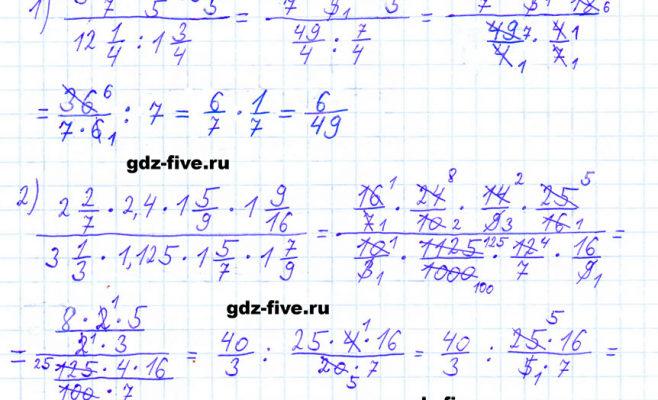 1) 12 1/4 : 1 3/4 = 49/4 : 7/4 =
= 36/(7 · 6) : 7 = 6/7 · 1/7 = 6/49
gdz-five.ru
2) (2 2/7 · 2,4 · 1 5/9 · 1 9/16)/(3 1/3 · 1,125 · 1 5/7 · 1 7/9) = (16/7 · 24/10 · 14/9 · 25/16)/(10/3 · 1125/1000 · 12/7 · 16/9) =
gdz-five.ru
= ((8 · 2 · 5)/(2 · 3))/((125 · 4 · 16)/(100 · 7)) = 40/3 : (25 · 4 · 16)/(20 · 7) = 40/3 : (25 · 16)/(5 · 7) =